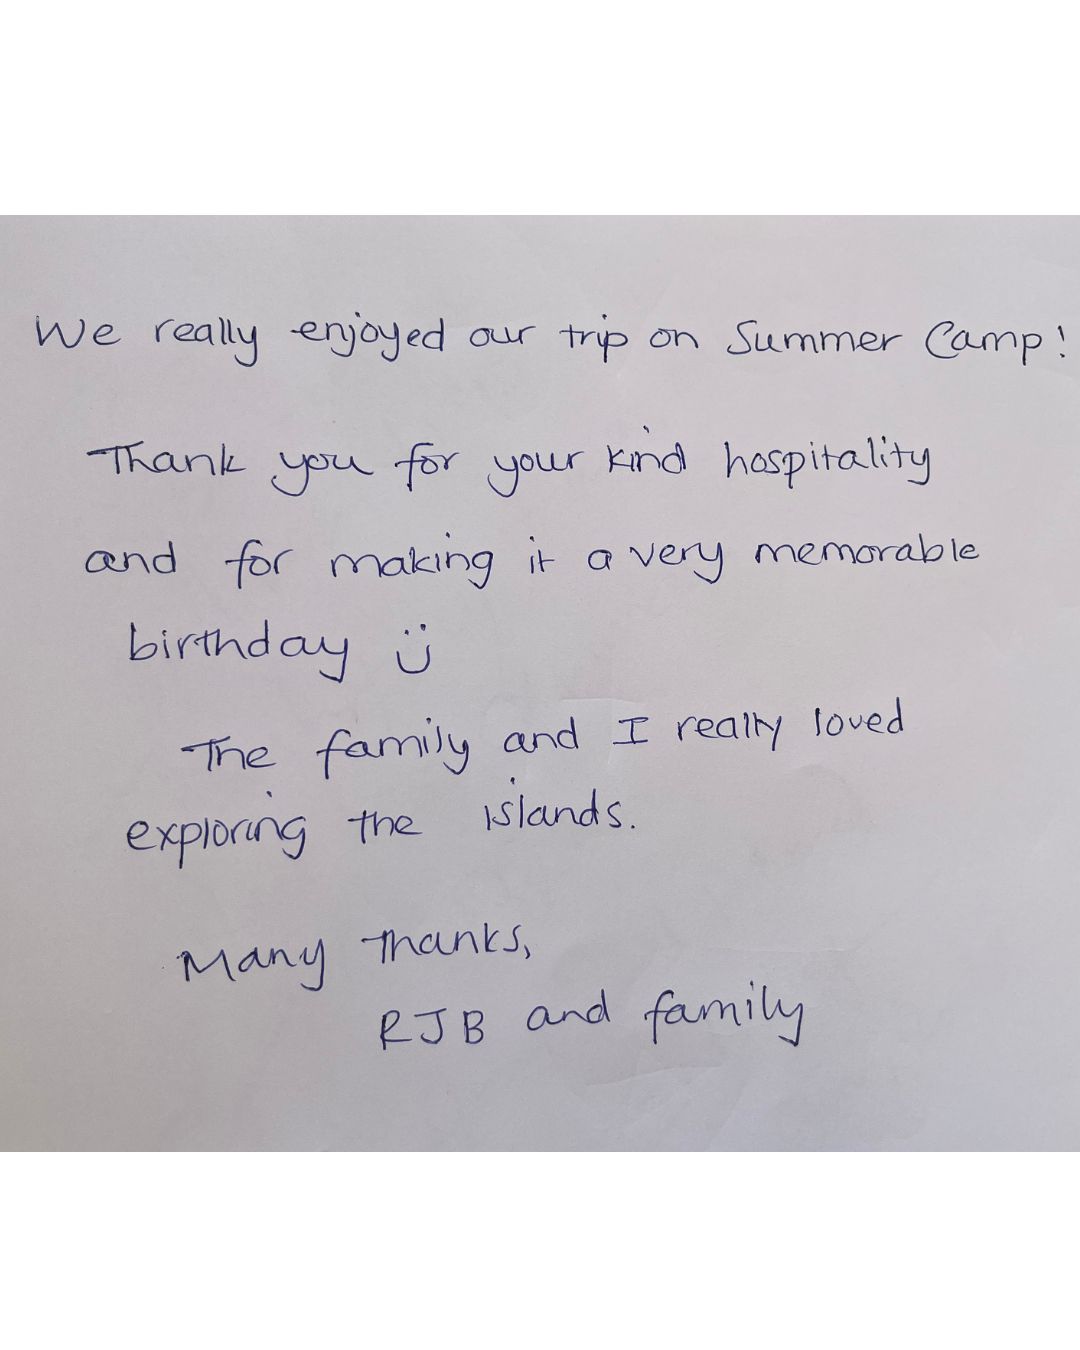 We really enjoyed our trip on Summer Camp!
Thank you for your kind hospitality
and for making it a very memorable
birthday :)
The family and I really loved
exploring the islands.
Many thanks,
RJB and family